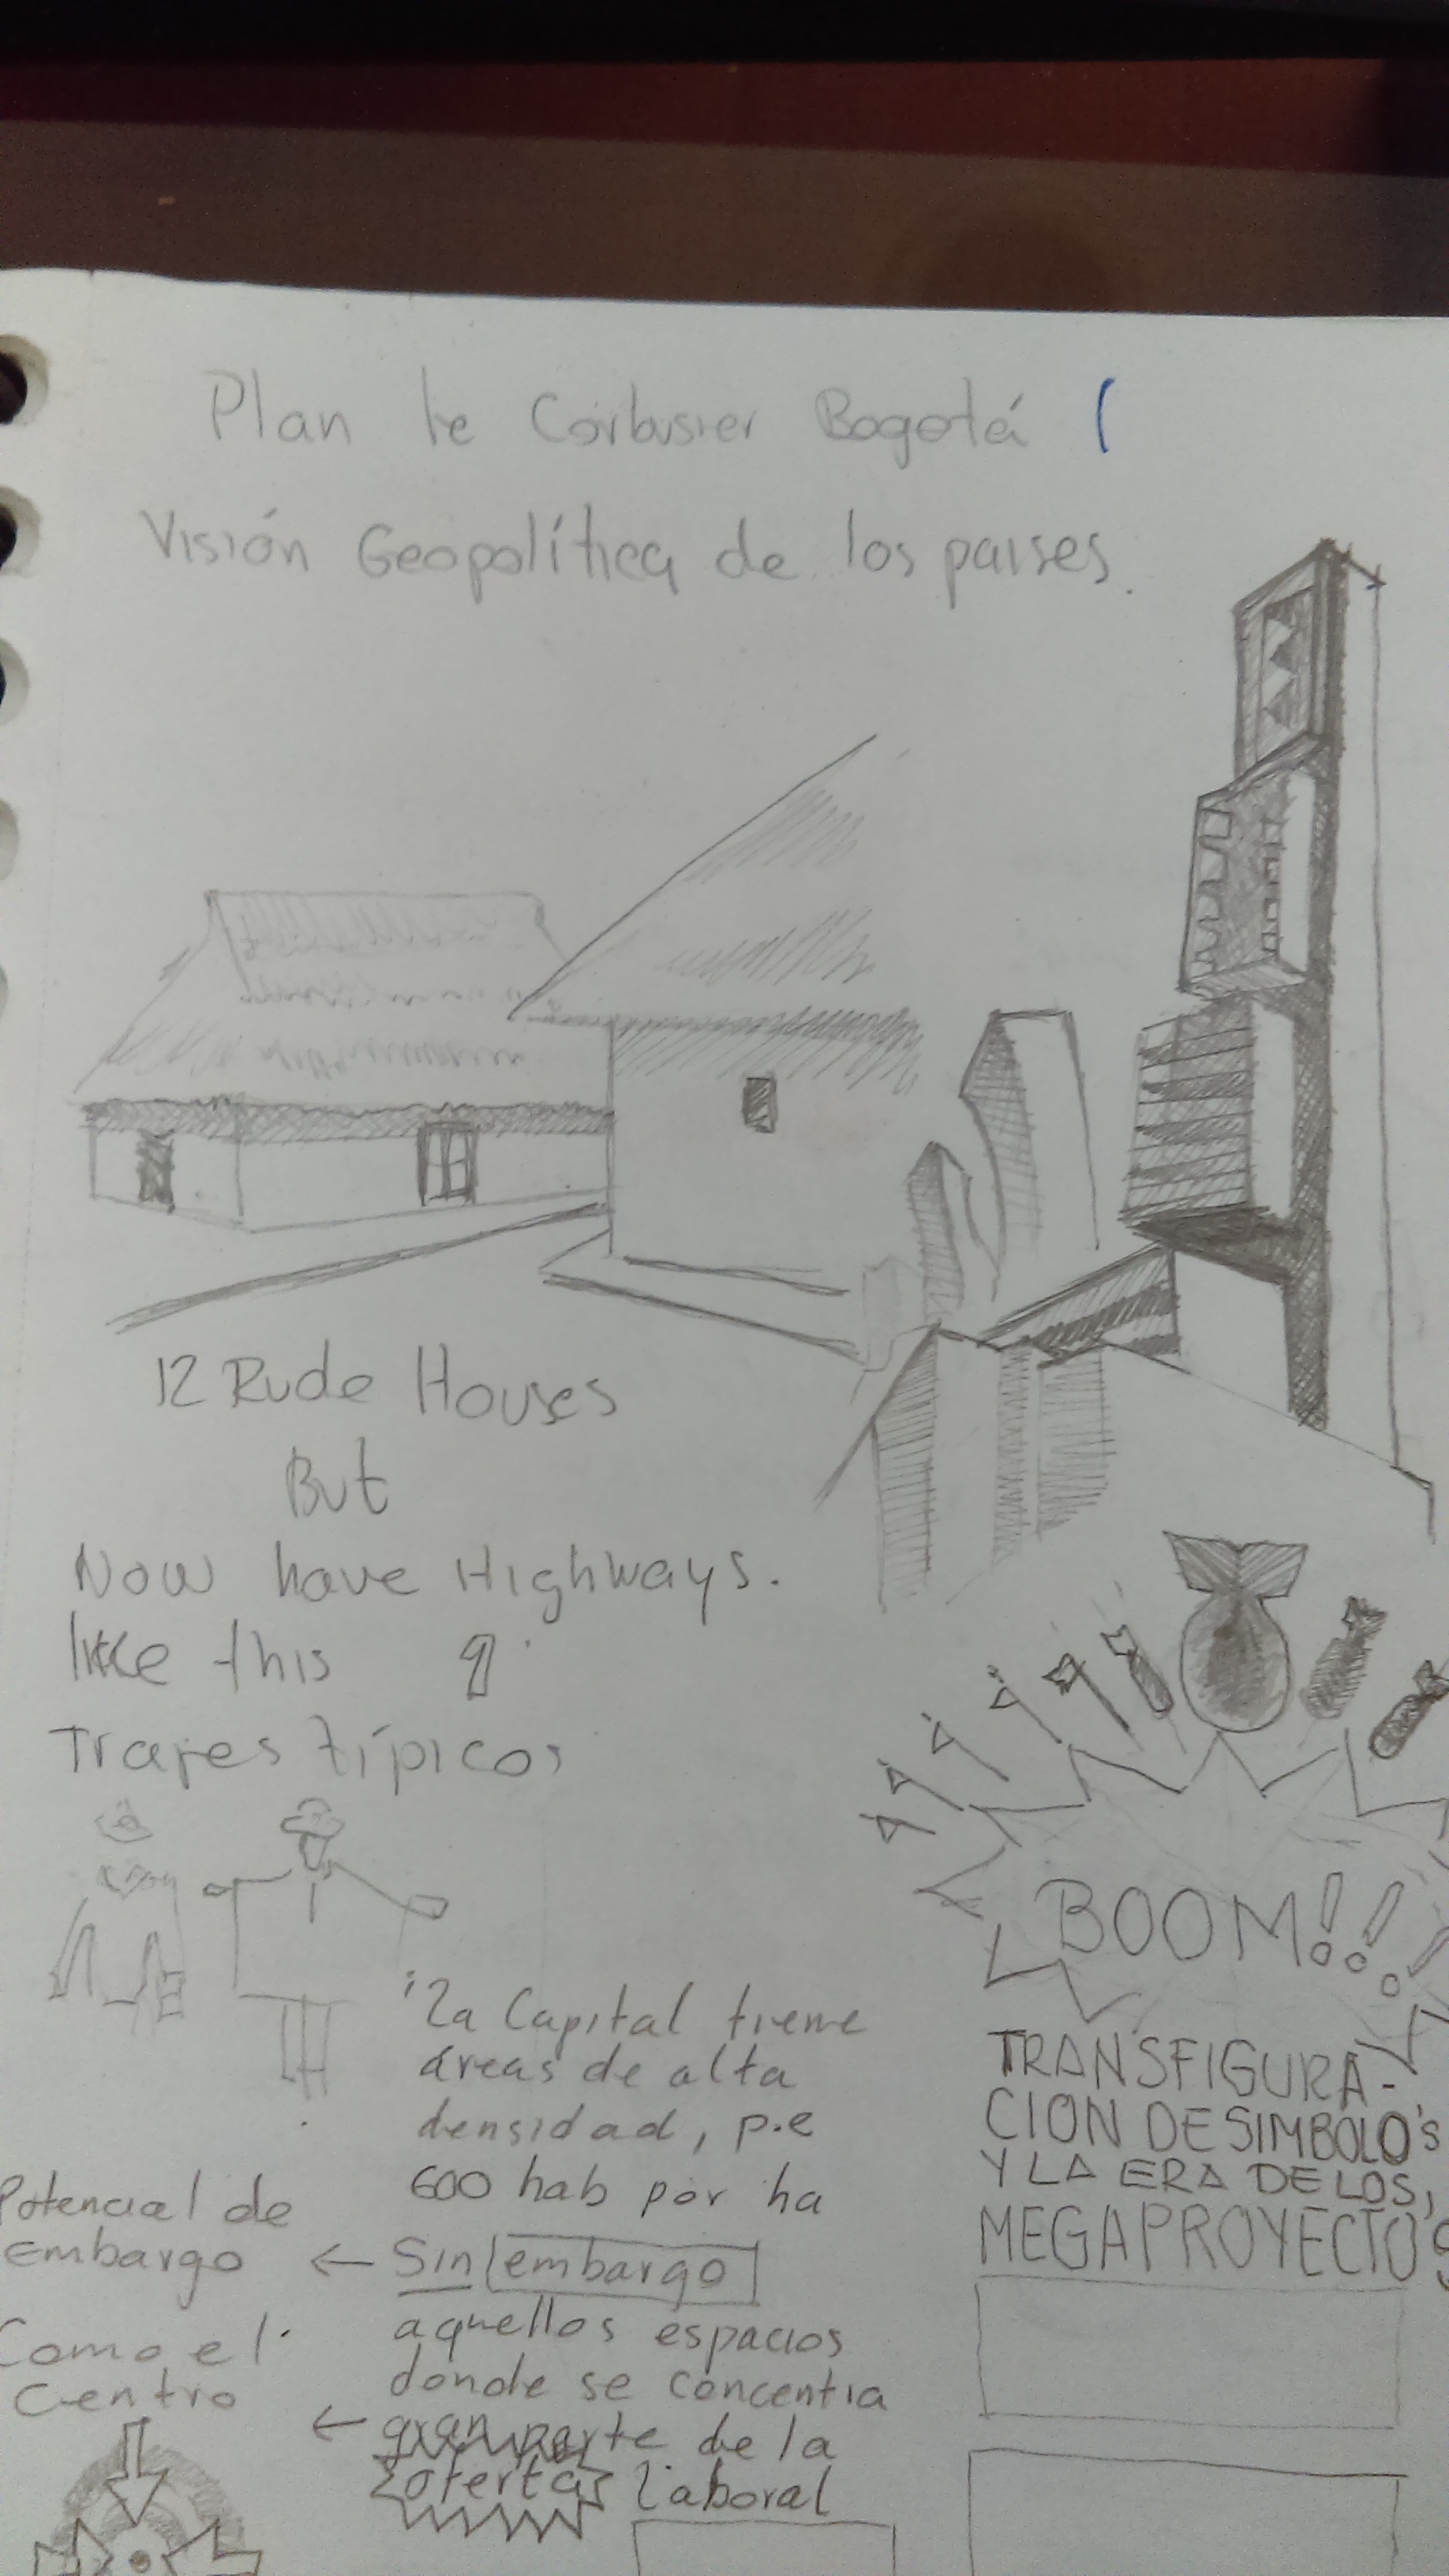 Plan Le Corbusier Bogotá (
Visión Geopolítica de los paises.
12 Rude Houses
But
Now have Highways.
like this
Trajes típicos
"La Capital tiene
áreas de alta
densidad, p.e
600 hab por ha
Sin embargo
aquellos espacios
donde se concentra
gran parte de la
oferta laboral
Potencial de
embargo
Como el
Centro
BOOM!!!
TRANSFIGURA-
CION DE SIMBOLO'S
Y LA ERA DE LOS,
MEGAPROYECTO'S